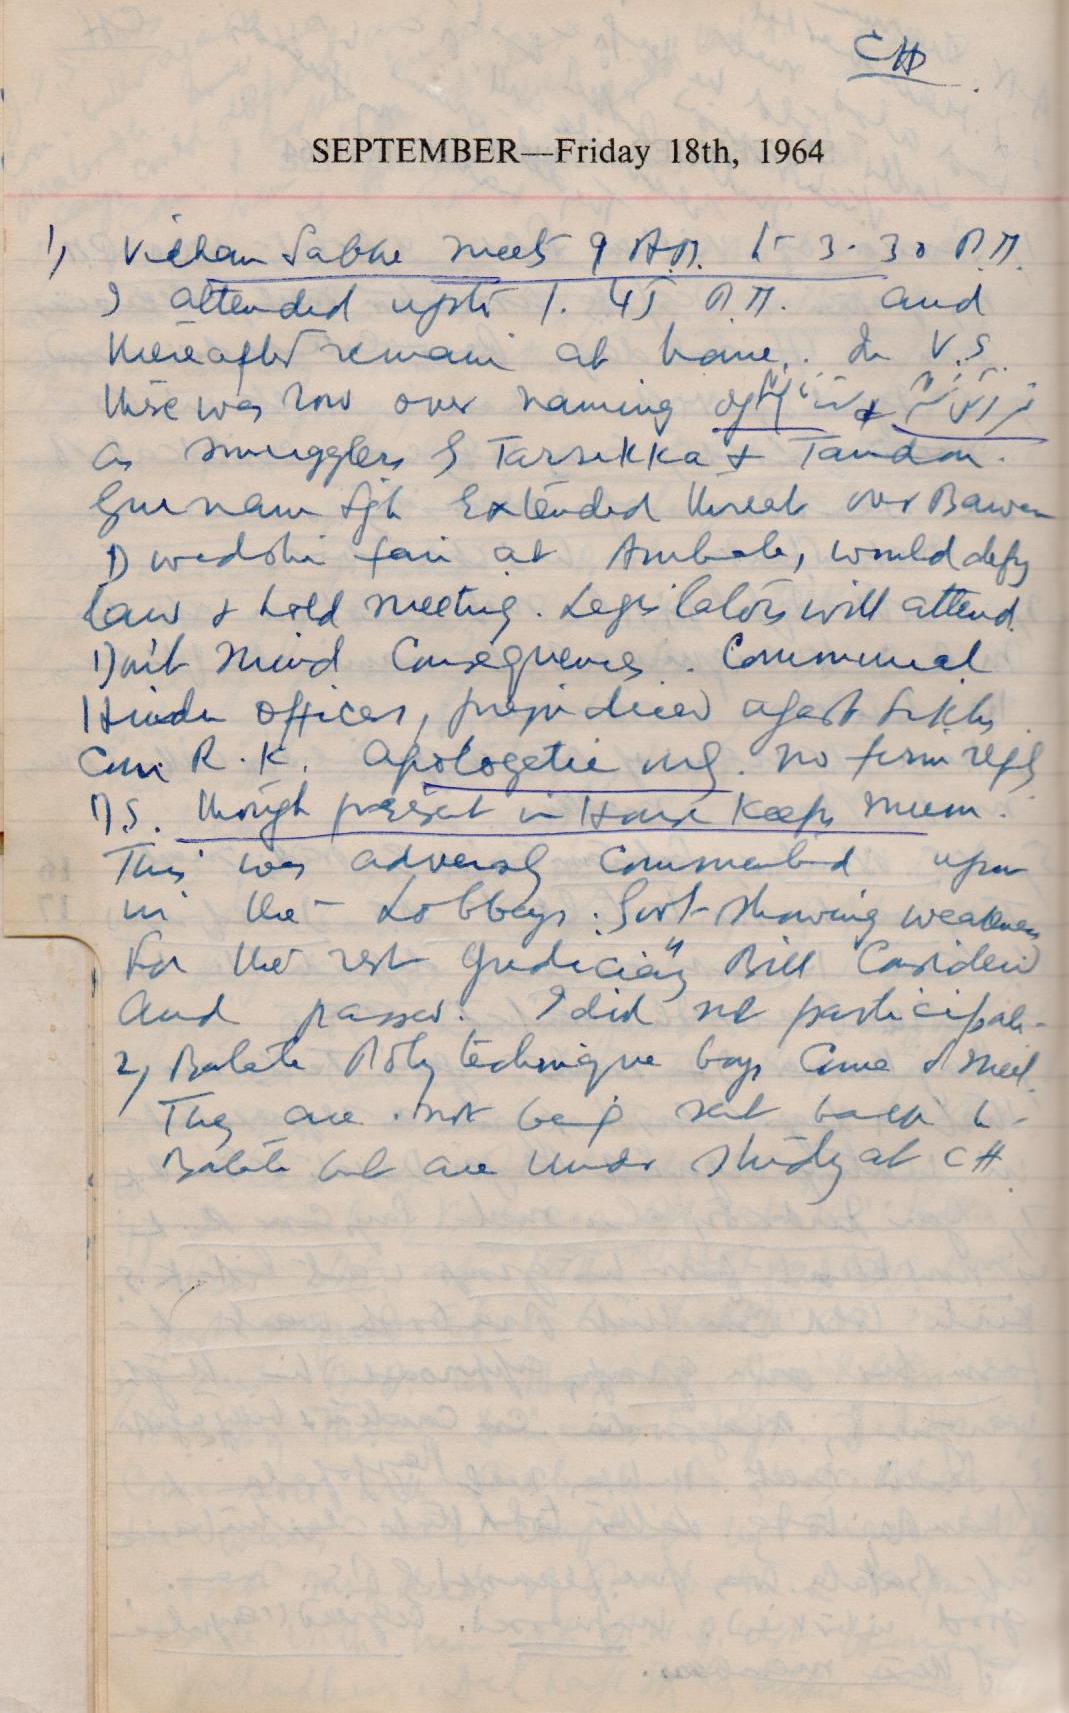 CH
SEPTEMBER—Friday 18th, 1964
1) Vidhan Sabha meets 9 A.M. to 3.30 P.M.
I attended upto 1.45 P.M. and
thereafter remain at home. In V.S.
there was row over naming of &
as smugglers by Tarsikka & Tandon.
Gurnam Sgh Extended threat over Bawan
Dwadshi fair at Ambala, would defy
law & hold meeting. Legislators will attend.
Don't mind Consequences. Communal
Hindu officers, prejudiced agast Sikhs.
Com R.K. apologetic only. no firm reply
D.S. though present in House Keeps mum.
This was adversely Commented upon
in the Lobbeys. Govt showing weakness
For the rest "Judiciary" Bill Considered
and passed. I did not participate
2) Batala Polytechnique boys Came & meet.
They are not being sent back to
Batala but are under study at CH